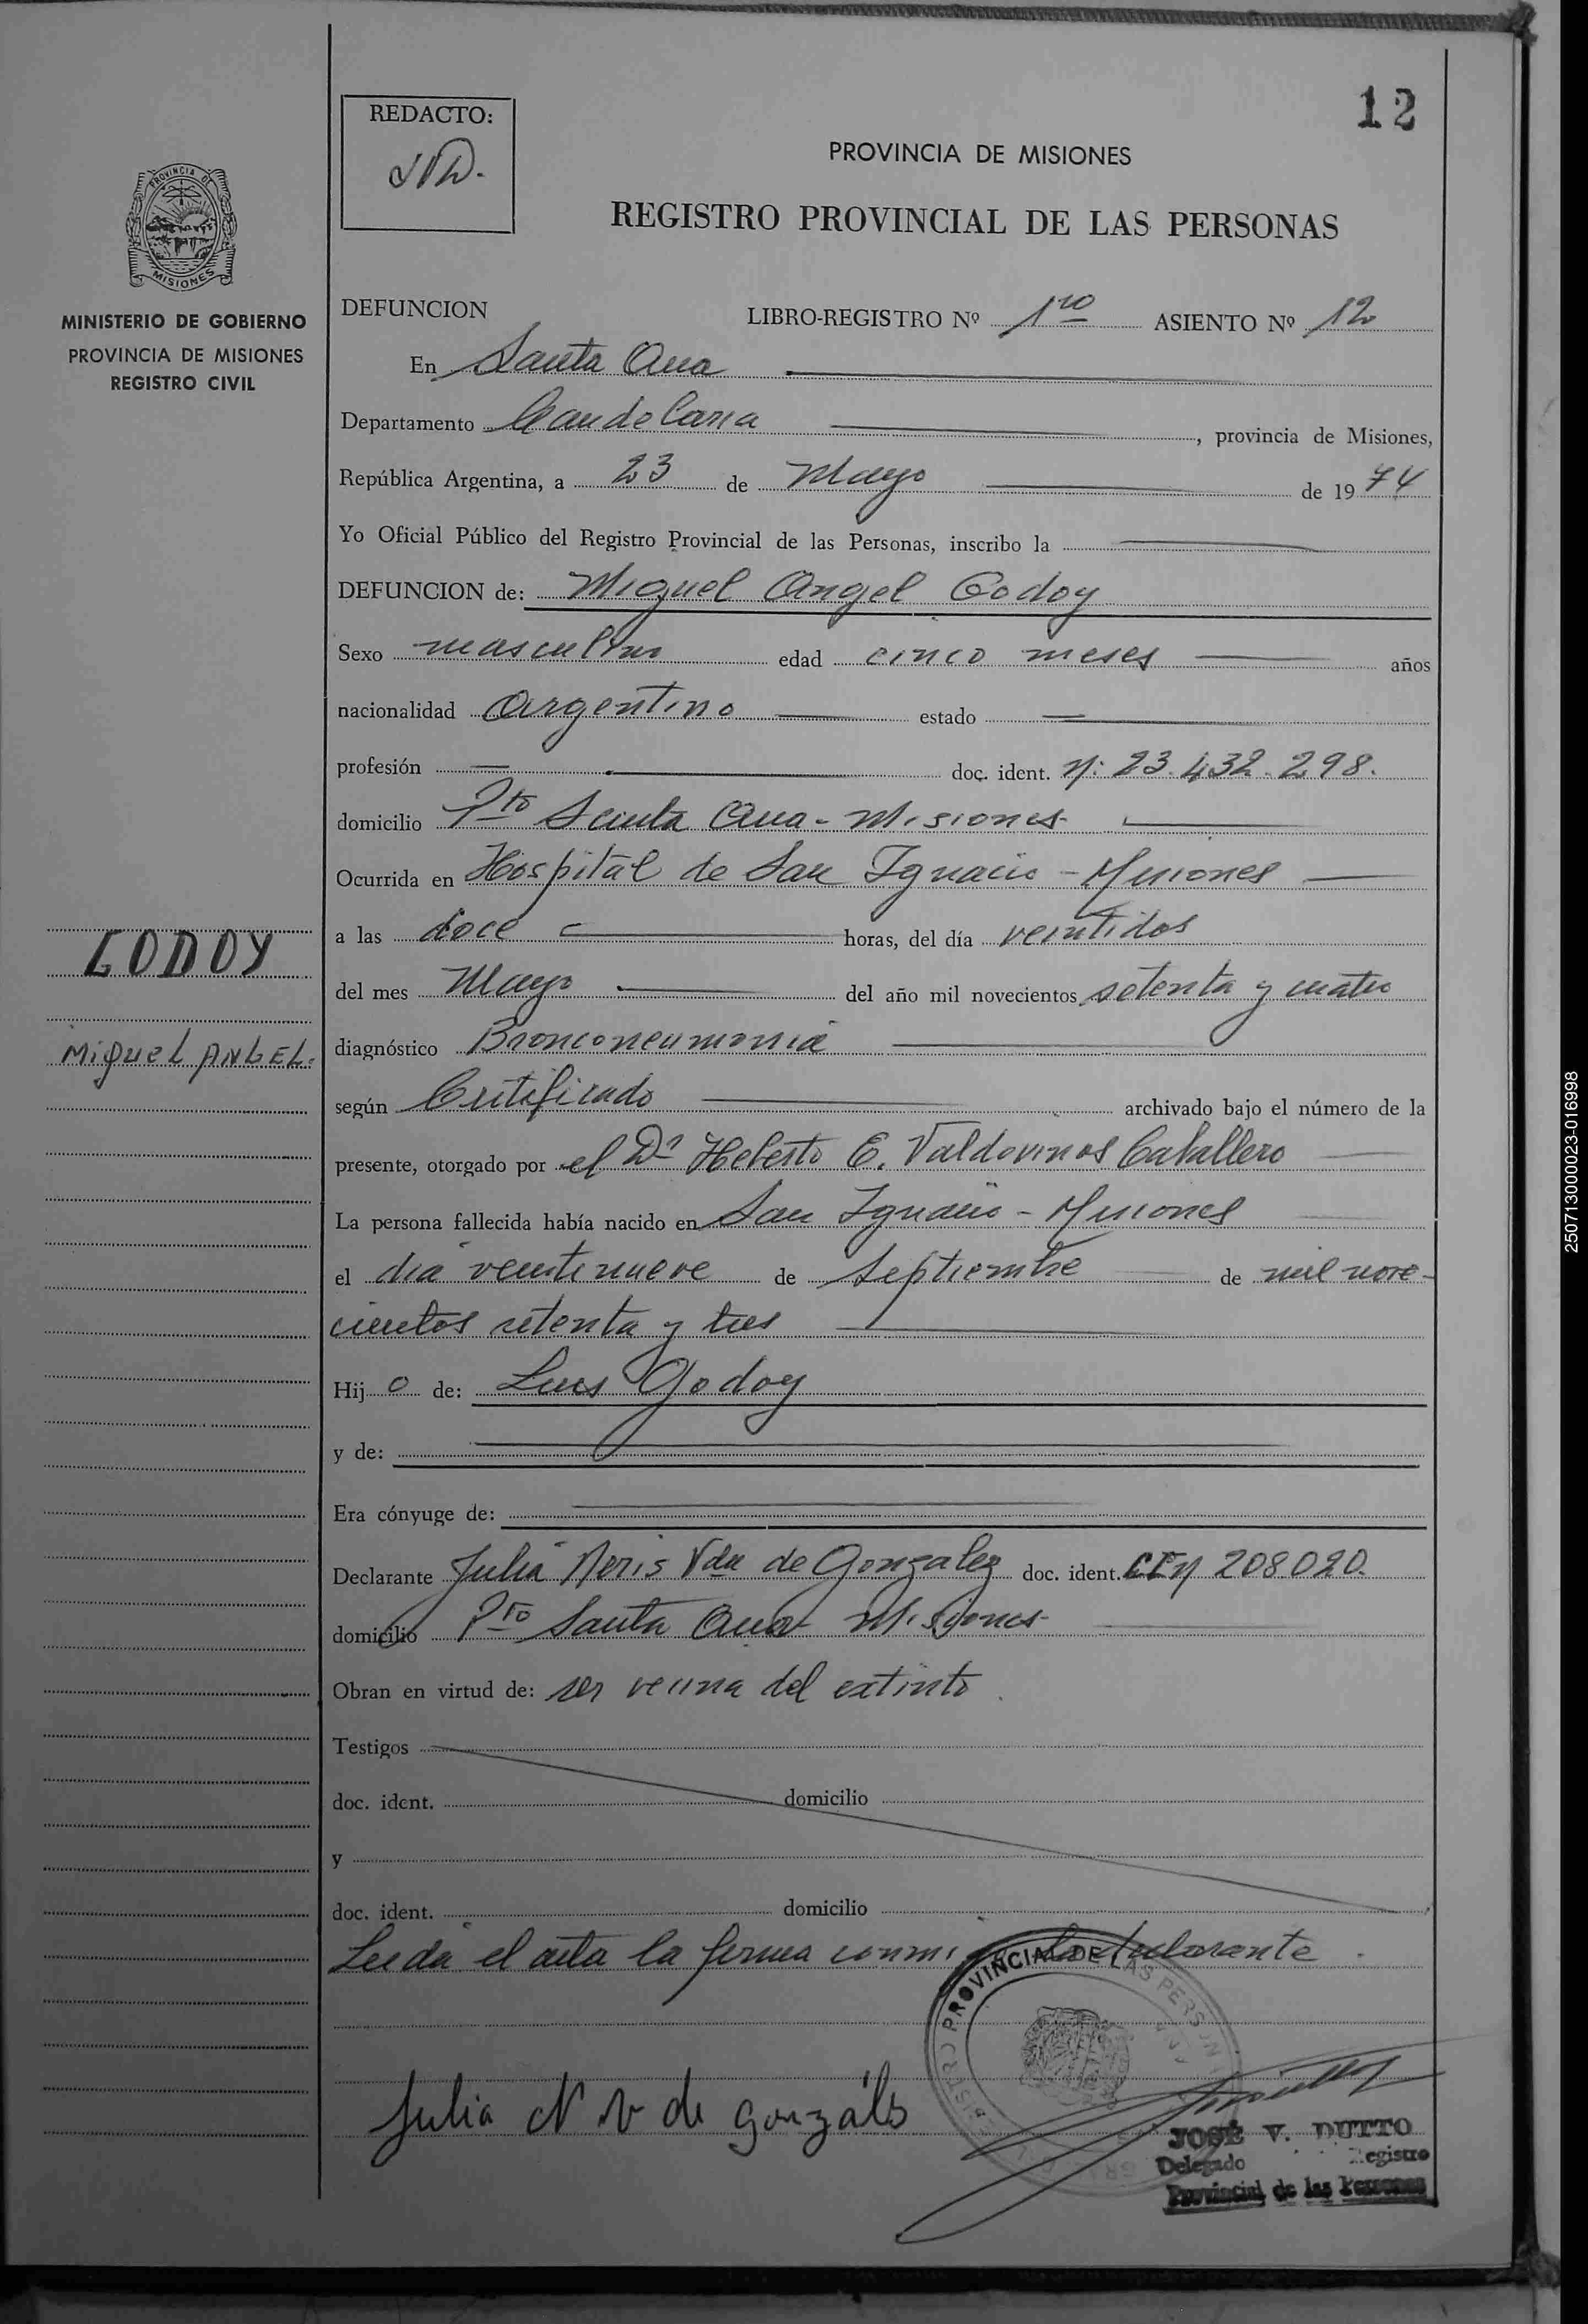 12
REDACTO:
PROVINCIA DE MISIONES
REGISTRO PROVINCIAL DE LAS PERSONAS
PROVINCIA DE
MISIONES
MINISTERIO DE GOBIERNO
PROVINCIA DE MISIONES
REGISTRO CIVIL
DEFUNCION LIBRO-REGISTRO Nº 1ro ASIENTO Nº 12
En Santa Ana
Departamento Candelaria, provincia de Misiones,
República Argentina, a 23 de Mayo de 1974
Yo Oficial Público del Registro Provincial de las Personas, inscribo la
DEFUNCION de: Miguel Angel Godoy
Sexo masculino edad cinco meses años
nacionalidad Argentino estado
profesión doc. ident. N: 23.432.298.
domicilio Pto Santa Ana - Misiones
Ocurrida en Hospital de San Ignacio - Misiones
a las doce horas, del día veintidos
GODOY
del mes Mayo del año mil novecientos setenta y cuatro
MIGUEL ANGEL.
diagnóstico Bronconeumonia
según Certificado archivado bajo el número de la
presente, otorgado por el Dr Heberto E. Valdovinos Caballero
La persona fallecida había nacido en San Ignacio - Misiones
el dia veintinueve de Septiembre de mil nove-
cientos setenta y tres
Hijo de: Luis Godoy
y de:
Era cónyuge de:
Declarante Julia Neris Vda de Gonzalez doc. ident. CI N 208020.
domicilio Pto Santa Ana Misiones
Obran en virtud de: ser vecina del extinto.
Testigos
doc. ident. domicilio
y
doc. ident. domicilio
Leida el acta la firma conmigo la declarante.
PROVINCIAL DE LAS PERSON
Julia N v de gonzáls
JOSÉ V. DUTTO
Delegado Registro
Provincial de las Personas
250713000023-016998